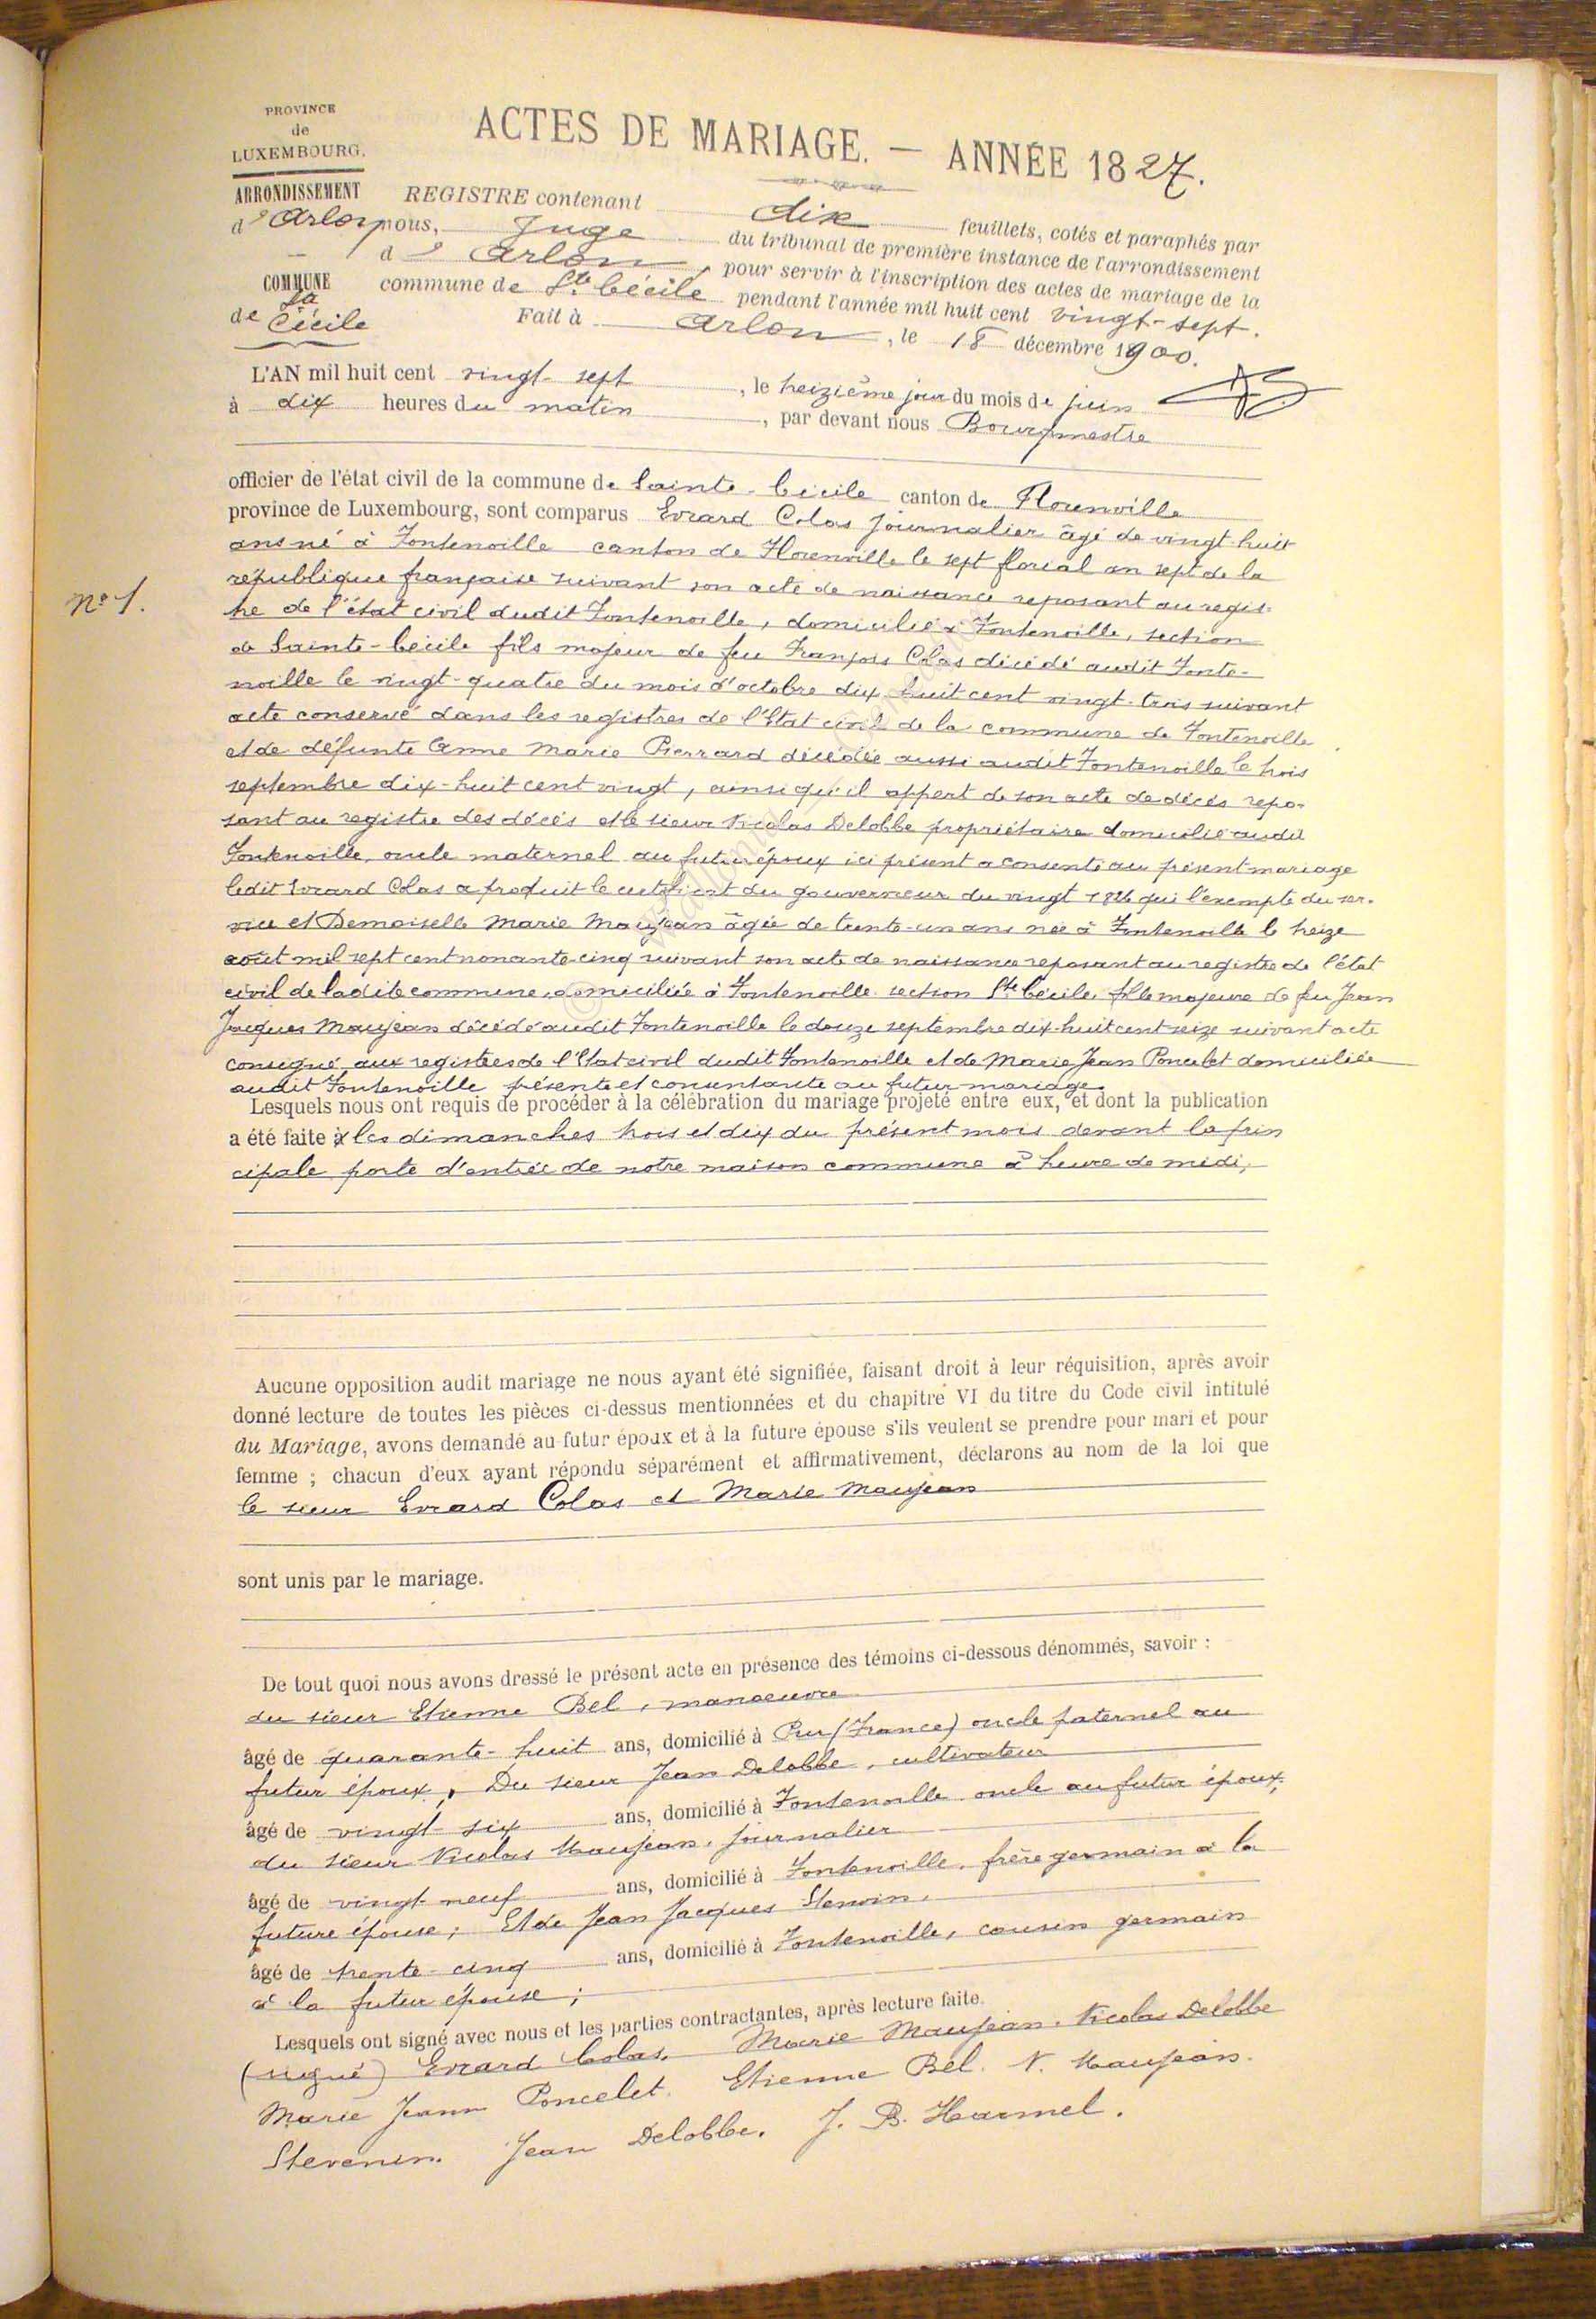 PROVINCE
de
LUXEMBOURG.
ARRONDISSEMENT
d'Arlon
COMMUNE
de Ste
Cécile
ACTES DE MARIAGE. — ANNÉE 1827.
REGISTRE contenant dix feuillets, cotés et paraphés par
nous, Juge du tribunal de première instance de l'arrondissement
d'Arlon, pour servir à l'inscription des actes de mariage de la
commune de Ste Cécile pendant l'année mil huit cent vingt-sept.
Fait à Arlon, le 18 décembre 1900.
L'AN mil huit cent vingt-sept, le treizième jour du mois de juin
à dix heures du matin, par devant nous Bourgmestre
officier de l'état civil de la commune de Sainte-Cécile canton de Florenville
province de Luxembourg, sont comparus Evrard Colas journalier âgé de vingt-huit
ans né à Fontenoille canton de Florenville le sept floréal an sept de la
république française suivant son acte de naissance reposant au regis-
tre de l'état civil dudit Fontenoille, domicilié à Fontenoille, section
de Sainte-Cécile fils majeur de feu François Colas décédé audit Fonte-
noille le vingt-quatre du mois d'octobre dix-huit cent vingt-trois suivant
acte conservé dans les registres de l'Etat civil de la commune de Fontenoille
et de défunte Anne Marie Pierrard décédée aussi audit Fontenoille le trois
septembre dix-huit cent vingt, ainsi qu'il appert de son acte de décès repo-
sant au registre des décès et le sieur Nicolas Delobbe propriétaire domicilié audit
Fontenoille, oncle maternel au futur époux ici présent a consenti au présent mariage
ledit Evrard Colas a produit le certificat du gouverneur du vingt 1826 qui l'exempte du ser-
vice et Demoiselle Marie Maujean âgée de trente-un ans née à Fontenoille le treize
août mil sept cent nonante-cinq suivant son acte de naissance reposant au registre de l'état
civil de ladite commune, domiciliée à Fontenoille section Ste Cécile, fille majeure de feu Jean
Jacques Maujean décédé audit Fontenoille le douze septembre dix-huit cent seize suivant acte
consigné aux registres de l'Etat civil dudit Fontenoille et de Marie Jean Poncelet domiciliée
audit Fontenoille présente et consentante au futur mariage.
N° 1.
Lesquels nous ont requis de procéder à la célébration du mariage projeté entre eux, et dont la publication
a été faite à les dimanches trois et dix du présent mois devant la prin
cipale porte d'entrée de notre maison commune à heure de midi,
Aucune opposition audit mariage ne nous ayant été signifiée, faisant droit à leur réquisition, après avoir
donné lecture de toutes les pièces ci-dessus mentionnées et du chapitre VI du titre du Code civil intitulé
du Mariage, avons demandé au futur époux et à la future épouse s'ils veulent se prendre pour mari et pour
femme ; chacun d'eux ayant répondu séparément et affirmativement, déclarons au nom de la loi que
le sieur Evrard Colas et Marie Maujean
sont unis par le mariage.
De tout quoi nous avons dressé le présent acte en présence des témoins ci-dessous dénommés, savoir :
du sieur Etienne Bel, manoeuvre
âgé de quarante-huit ans, domicilié à Pur (France) oncle paternel au
futur époux, Du sieur Jean Delobbe, cultivateur
âgé de vingt six ans, domicilié à Fontenoille oncle au futur époux,
du sieur Nicolas Maujean, journalier
âgé de vingt-neuf ans, domicilié à Fontenoille, frère germain à la
future épouse ; Et de Jean Jacques
âgé de trente-cinq ans, domicilié à Fontenoille, cousin germain
à la futur épouse ;
Lesquels ont signé avec nous et les parties contractantes, après lecture faite.
(signé) Evrard Colas. Marie Maujean. Nicolas Delobbe
Marie Jeann Poncelet. Etienne Bel. N. Maujean.
Stevenin. Jean Delobbe. J. B. Harmel.